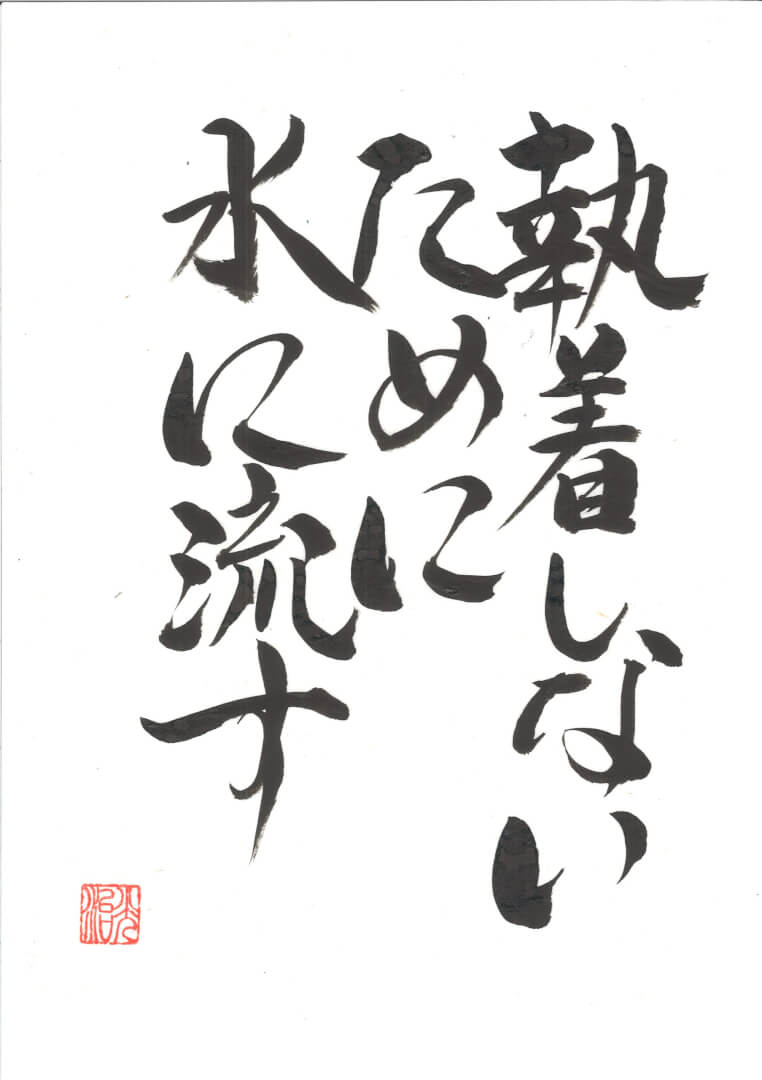 執着しない
ために
水に流す